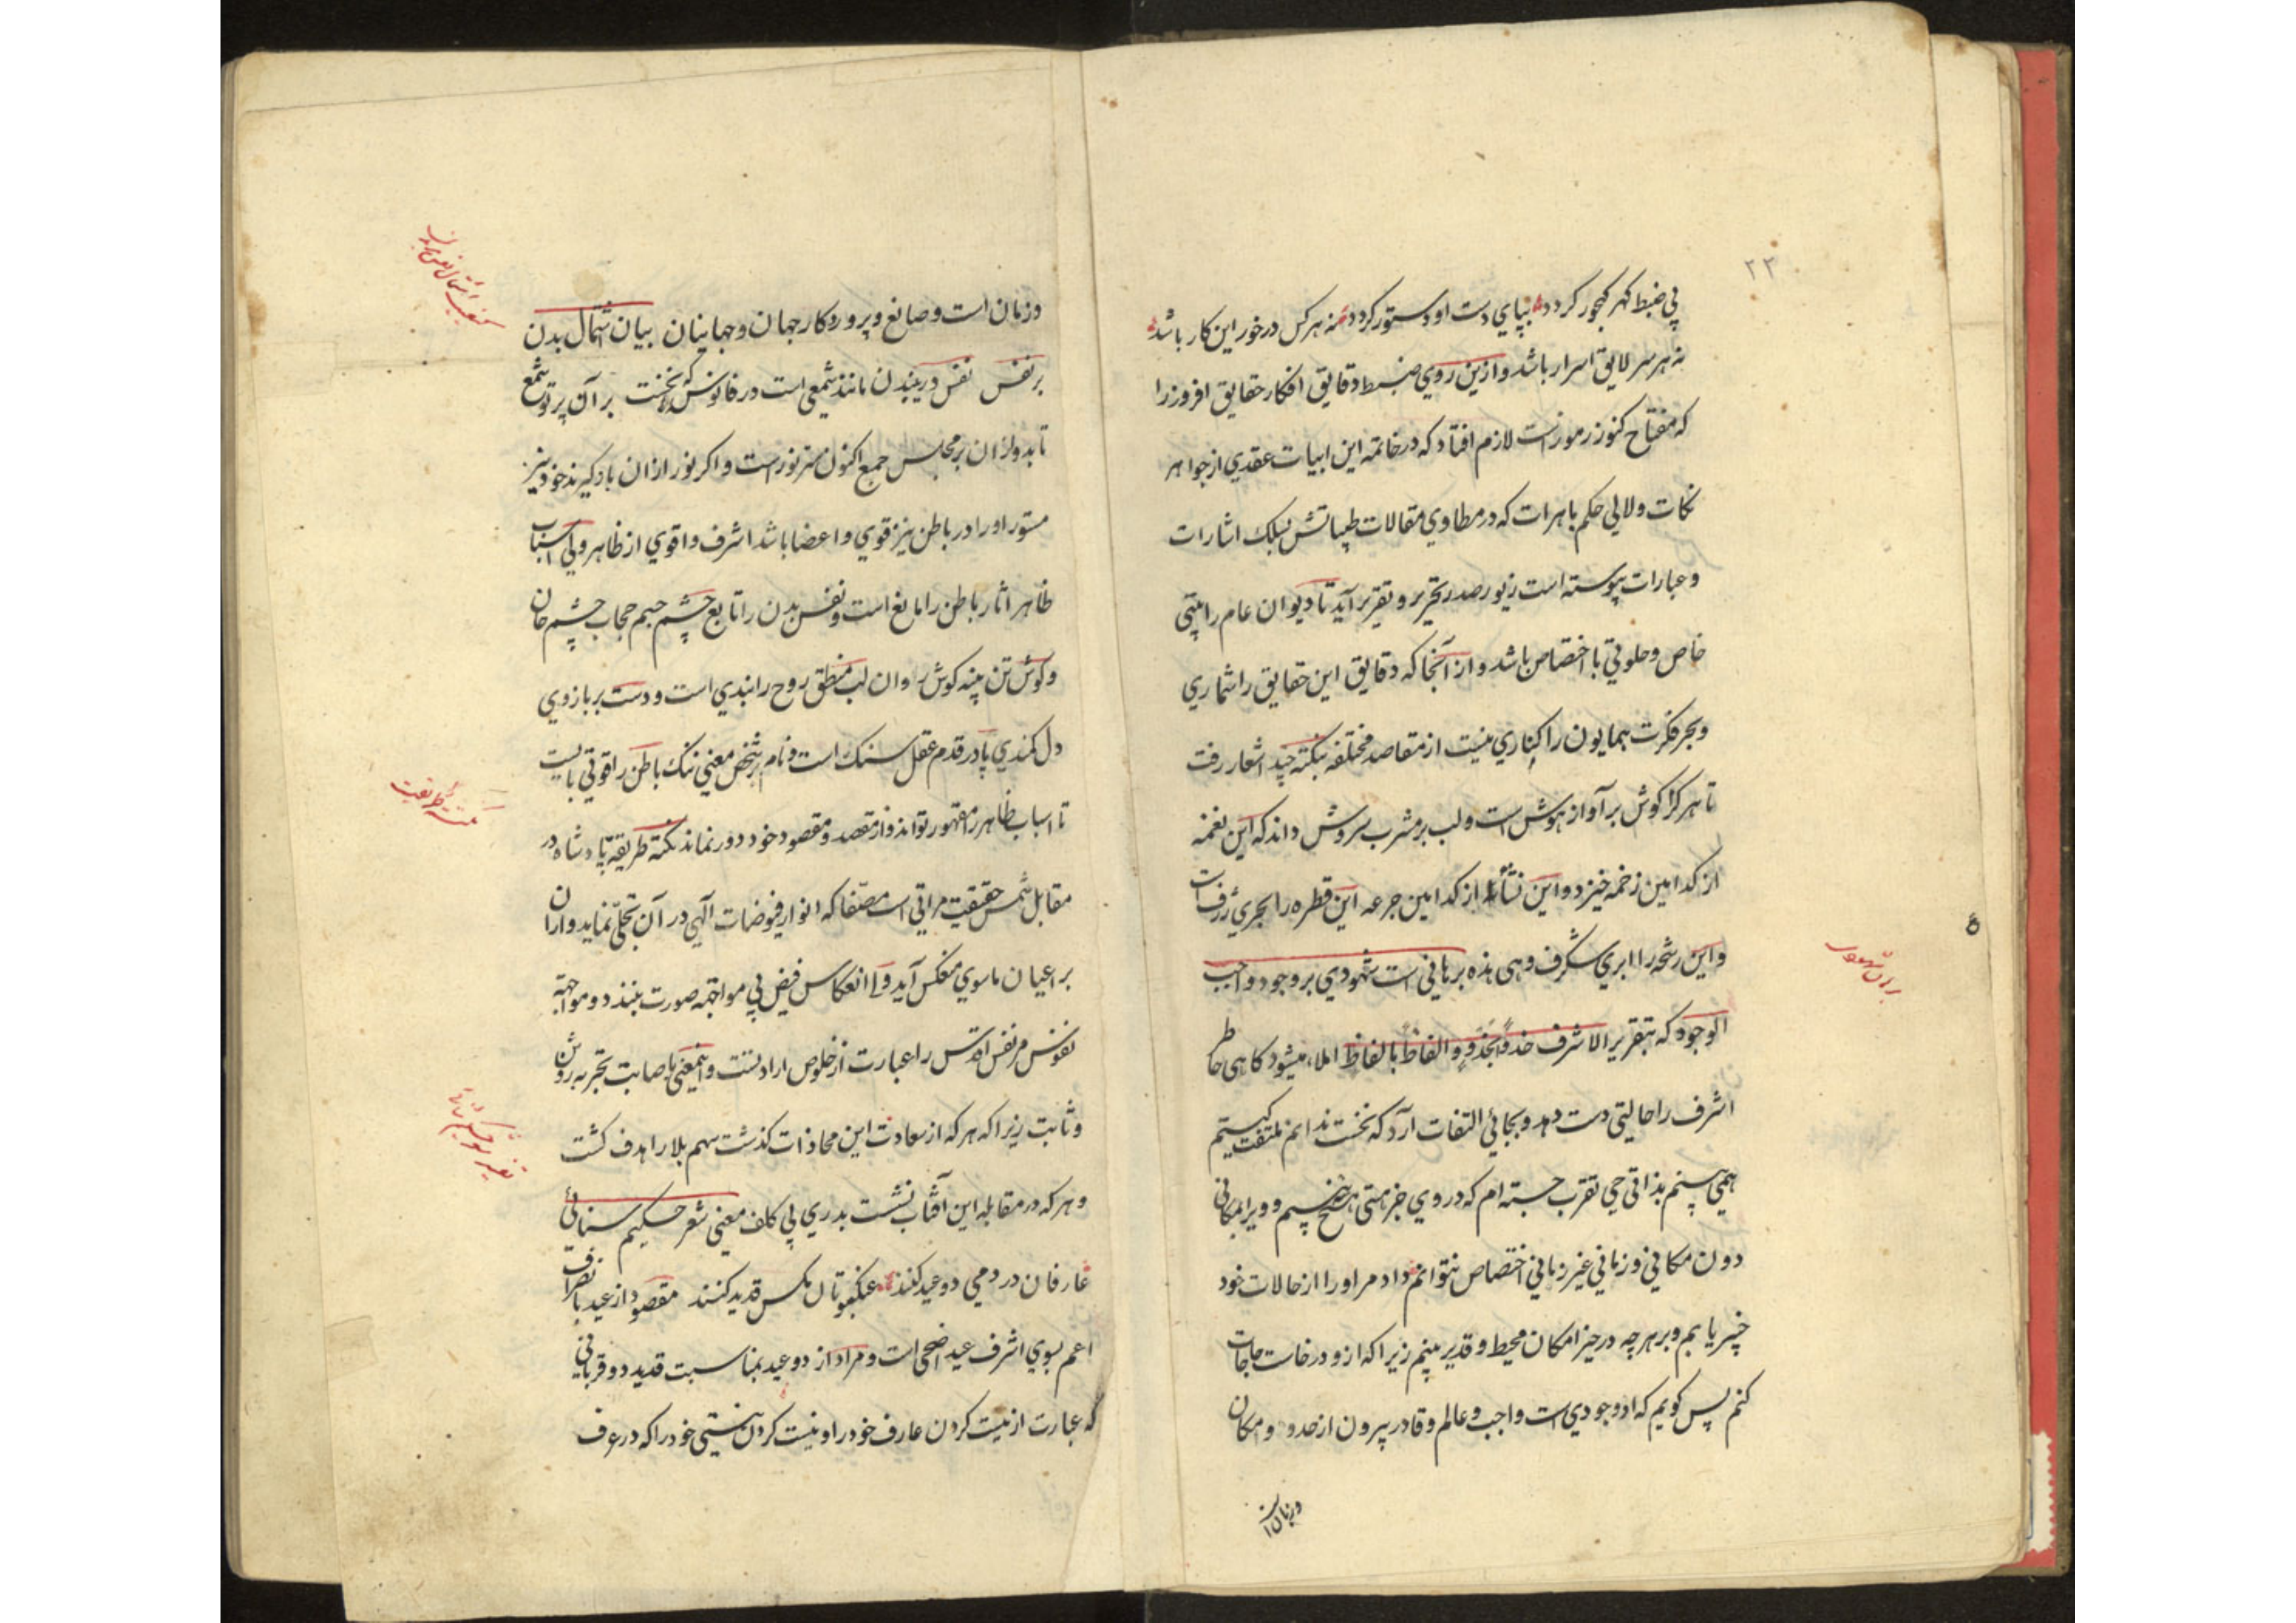 ۲۲
پی ضبط گهر گنجور گردد بپای دست او دستور گردد نه هرکس درخور این کار باشد
نه هر سر لایق اسرار باشد و ازین روی ضبط دقایق افکار حقایق افروز را
که مفتاح کنوز رموزاست لازم افتاد که در خاتمه این ابیات عقدی از جواهر
نکات و لالی حکم باهرات که در مطاوی مقالات طیباتش بسلک اشارات
و عبارات پیوسته است زیور صدر تحریر و تقریر آید تا دیوان عام را بیتی
خاص و خلوتی با اختصاص باشد و از آنجا که دقایق این حقایق را شماری
و بحر فکرت همایون را کناری نیست از مقاصد مختلفه بنکته چند اشعار رفت
تا هر کرا گوش بر آواز هوش است و لب بر مشرب سروش داند که این نغمه
از کدامین زخمه خیزد و این نشأه از کدامین جرعه این قطره را بحری ژرفست
و این رشحه را ابری شگرف و هی هذه برهانی است شهودی بر وجود واجب
الوجود که بتقریر الاشرف حذوا بحذو و الفاظا بالفاظ املاء میشود گاهی خاطر
اشرف را حالیتی دست دهد و بجائی التفات آرد که نخست ندانم ملتفت کیستم
همی بینم بذاتی حی تقرب جسته ام که در وی جز هستی هیچ نبینم و ویرا بمکانی
دون مکانی و زمانی غیر زمانی اختصاص نتوانم داد مر او را از حالات خود
خبیر یابم و بر هرچه در حیز امکان محیط و قدیر بینم زیرا که ازو درخواست حاجات
کنم پس گویم که او وجودی است واجب و عالم و قادر بیرون از حدود و مکان
و زمان است
برهان شهودی
و زمان است و صانع و پروردکار جهان و جهانیان بیان اشتمال بدن
بر نفس نفس درین بدن مانند شمعی است در فانوس که نخست بر آن پرتو شمع
تابد و از آن بر مجلس جمع اکنون سر نور است و اگر نور از آن بازگیرند خود نیز
مستور او را در باطن نیز قوی و اعضا باشد اشرف و اقوی از ظاهر ولی اسباب
ظاهر اثار باطن را مانع است و نفس بدن را تابع چشم جسم حجاب چشم جان
و گوش تن پنبه گوش روان لب منطق روح را بندی است و دست بر بازوی
دل کمندی پا در قدم عقل سنگ است و نام بر شخص معنی ننگ باطن را قوتی بایست
تا اسباب ظاهر را مقهور تواند و از مقصد و مقصود خود دور نماند نکته طریقه پادشاه در
مقابل شمس حقیقت مراتی است مصفا که انوار فیوضات آلهی در آن تجلی نماید و از آن
بر اعیان ماسوی منعکس آید و لا انعکاس فیض بی مواجهه صورت نبندد و مواجهه
نفوس مر نفس اقدس را عبارت از خلوص ارادتست و اینمعنی باصابت تجربه روشن
و ثابت زیرا که هرکه از سعادت این محاذات گذشت سهم بلا را هدف گشت
و هرکه در مقابله این آفتاب نشست بدری بی کلف معنی شعر حکیم سنائی
عارفان در دمی دو عید کنند عنکبوتان مگس قدید کنند مقصود از عید بانصراف
اعم بسوی اشرف عید اضحی است و مراد از دو عید بمناسبت قدید دو قربانی
که عبارت از نیست کردن عارف خود را و نیست کردن نیستی خود را که در عرف